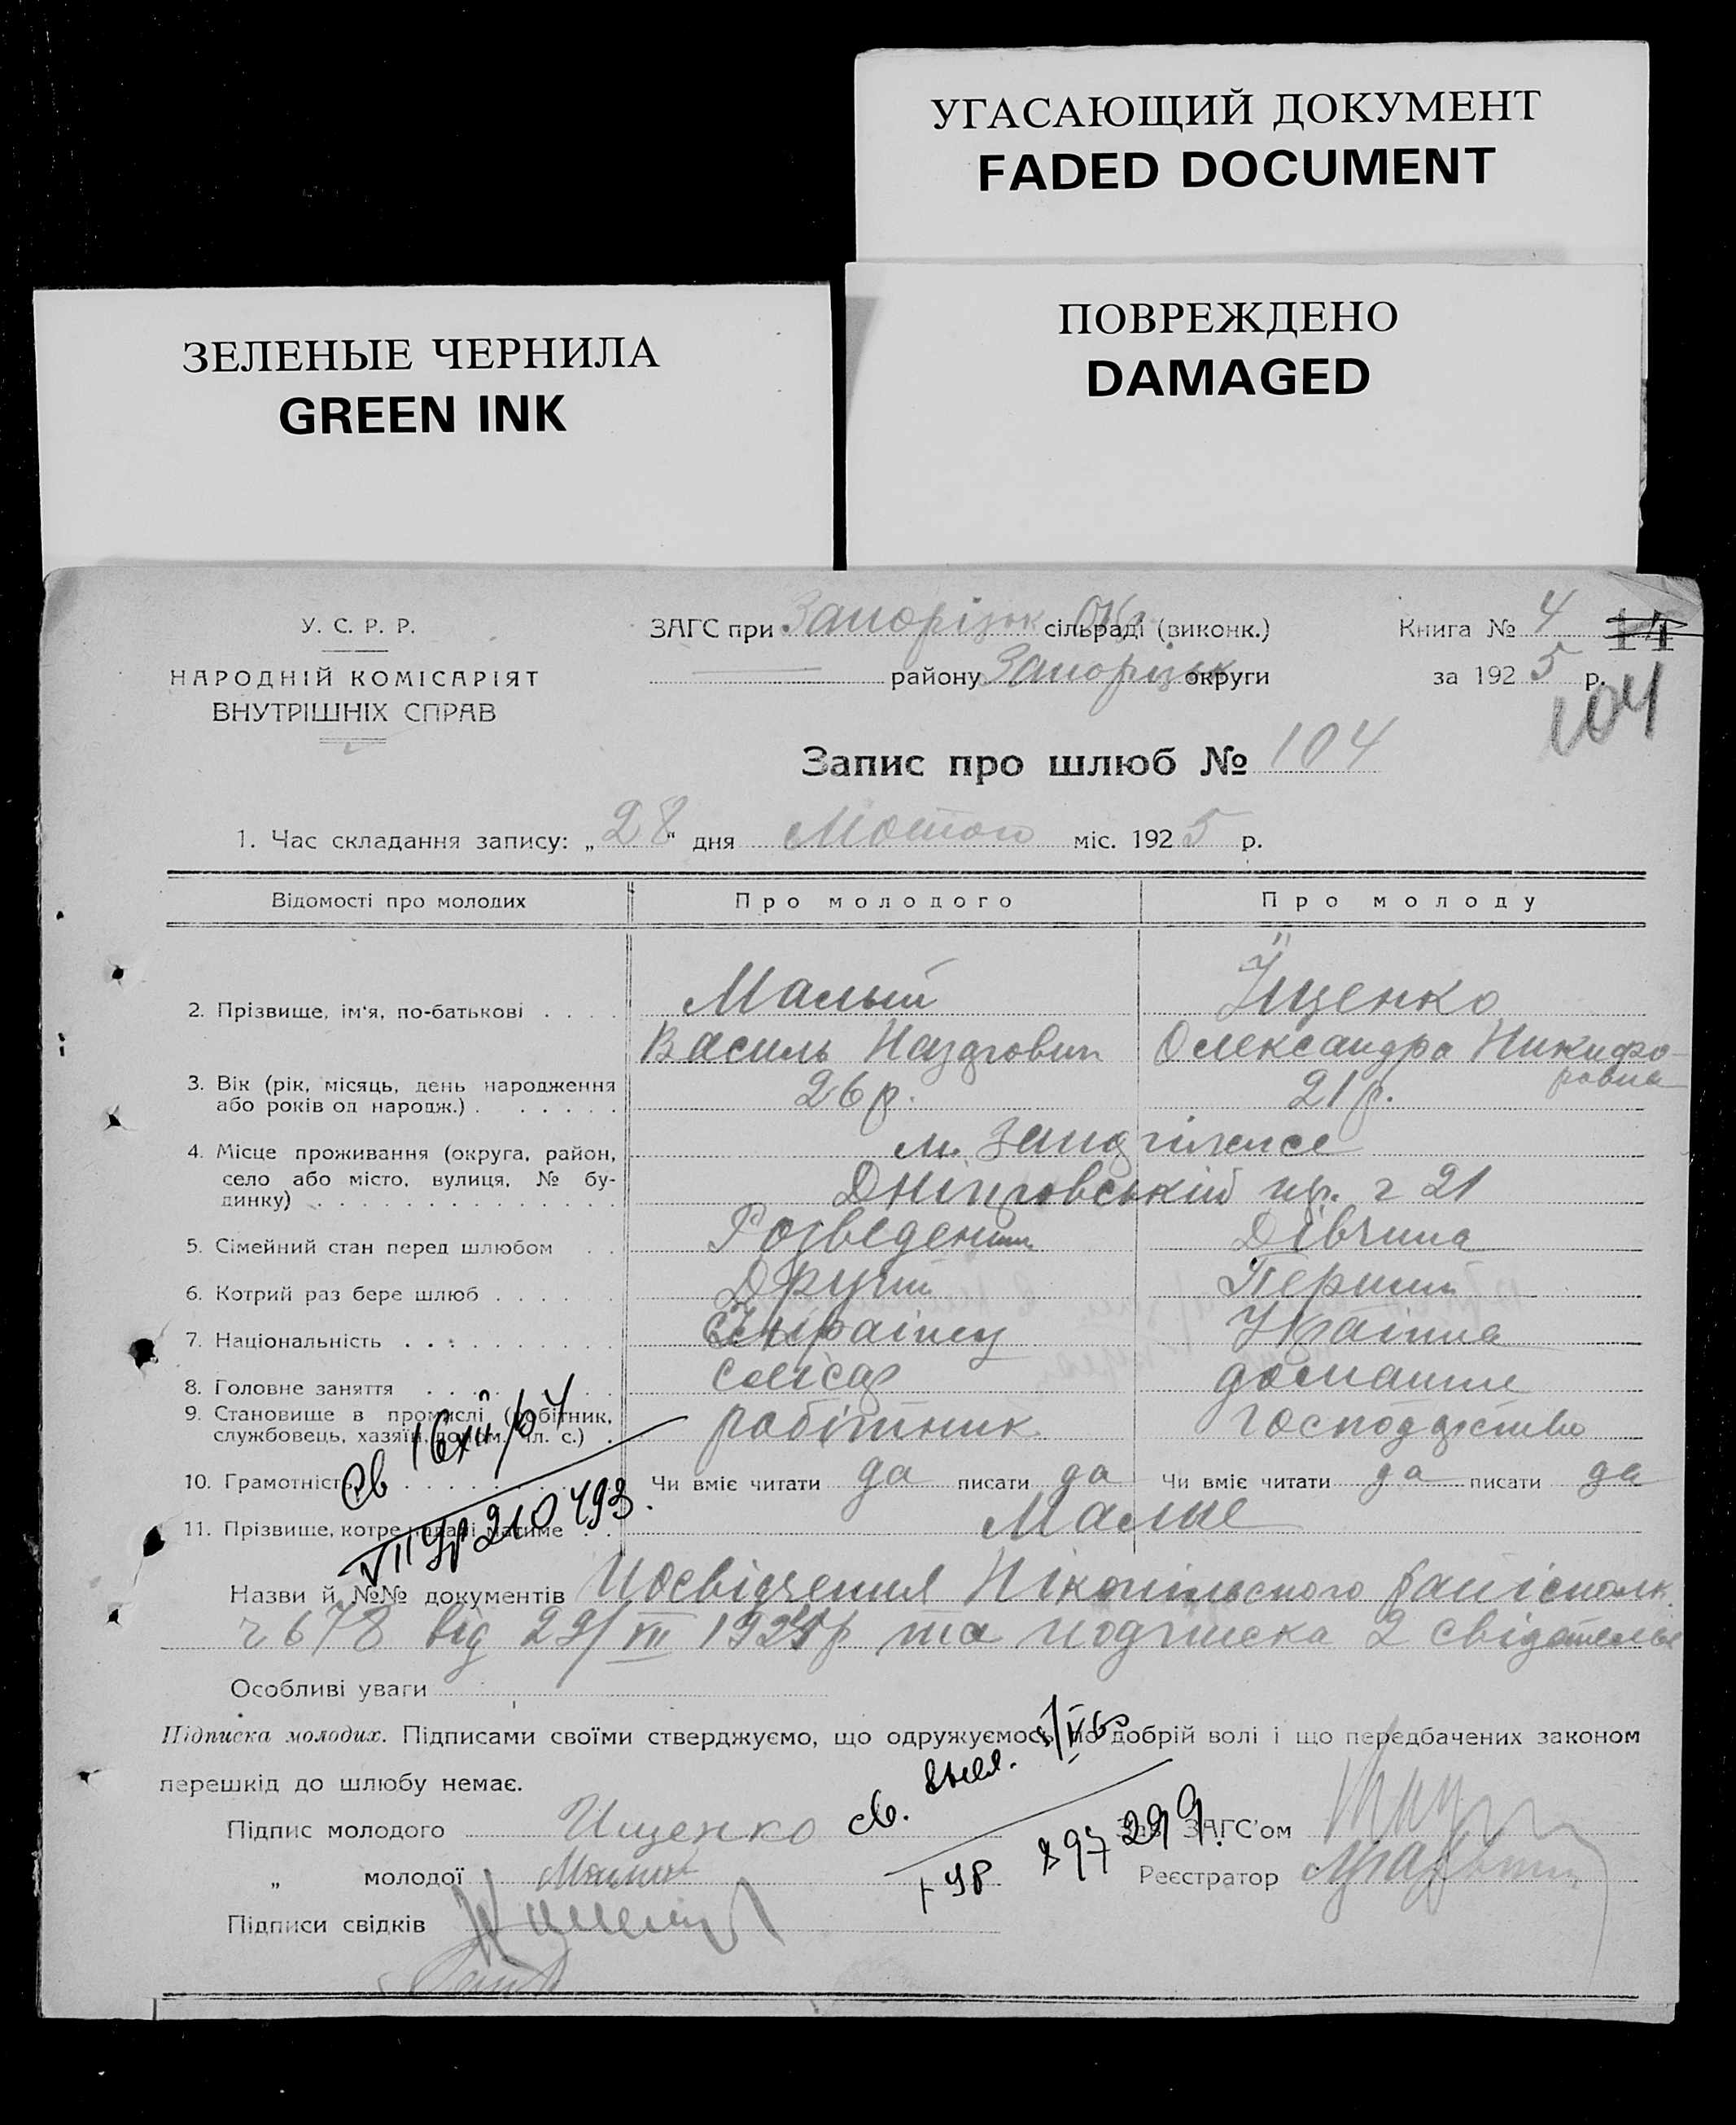 УГАСАЮЩИЙ ДОКУМЕНТ
FADED DOCUMENT
ПОВРЕЖДЕНО
DAMAGED
ЗЕЛЕНЫЕ ЧЕРНИЛА
GREEN INK
У. С. Р. Р.
НАРОДНІЙ КОМІСАРІЯТ
ВНУТРІШНІХ СПРАВ
ЗАГС при Запорізьк Окр. сільраді (виконк.)
району Запорізьк округи
Книга № 4 14
за 192 5 р.
104
Запис про шлюб № 104
1. Час складання запису: „ 28 " дня Лютого міс. 192 5 р.
Відомості про молодих Про молодого Про молоду
2. Прізвище, ім'я, по-батькові Малый Іщенко
Василь Олександра Никифо-
ровна
3. Вік (рік, місяць, день народження або років од народж.) 26 р. 21 р.
4. Місце проживання (округа, район, село або місто, вулиця, № будинку) м. Запоріжже
Дніпровській пр. ч 21
5. Сімейний стан перед шлюбом Розведений Дівчина
6. Котрий раз бере шлюб Другий Перший
7. Національність Українец Українка
8. Головне заняття слюсар домашне
9. Становище в промислі (робітник, службовець, хазяїн, допом. чл. с.) робітник господарство
10. Грамотність Чи вміє читати да писати да Чи вміє читати да писати да
11. Прізвище, котре надалі матиме Малые
св 16 XII/64
VII УР 210493.
Назви й №№ документів Посвідчення Нікопільського
ч 678 від 29/VII 1924 р та подписка 2 свідетелье
Особливі уваги
Підписка молодих. Підписами своїми стверджуємо, що одружуємось по добрій волі і що передбачених законом
перешкід до шлюбу немає.
св. выд.
УР 897299.
Підпис молодого Ищенко Зав. ЗАГС'ом
„ молодої Малый Реєстратор
Підписи свідків